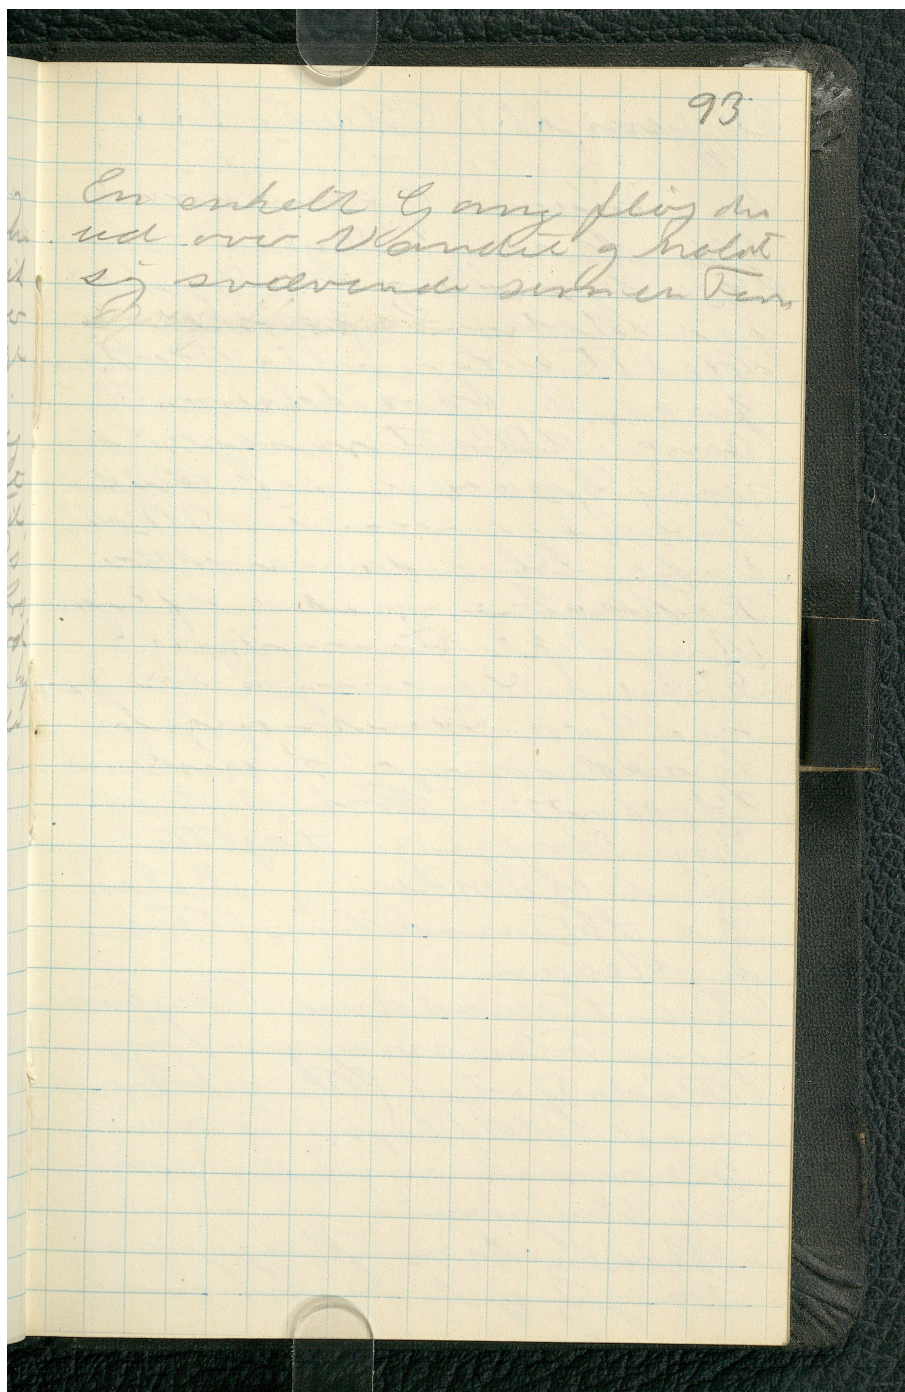 93
En enkelt Gang fløj den
ud over Vandet og holdt
sig svævende som en Terne